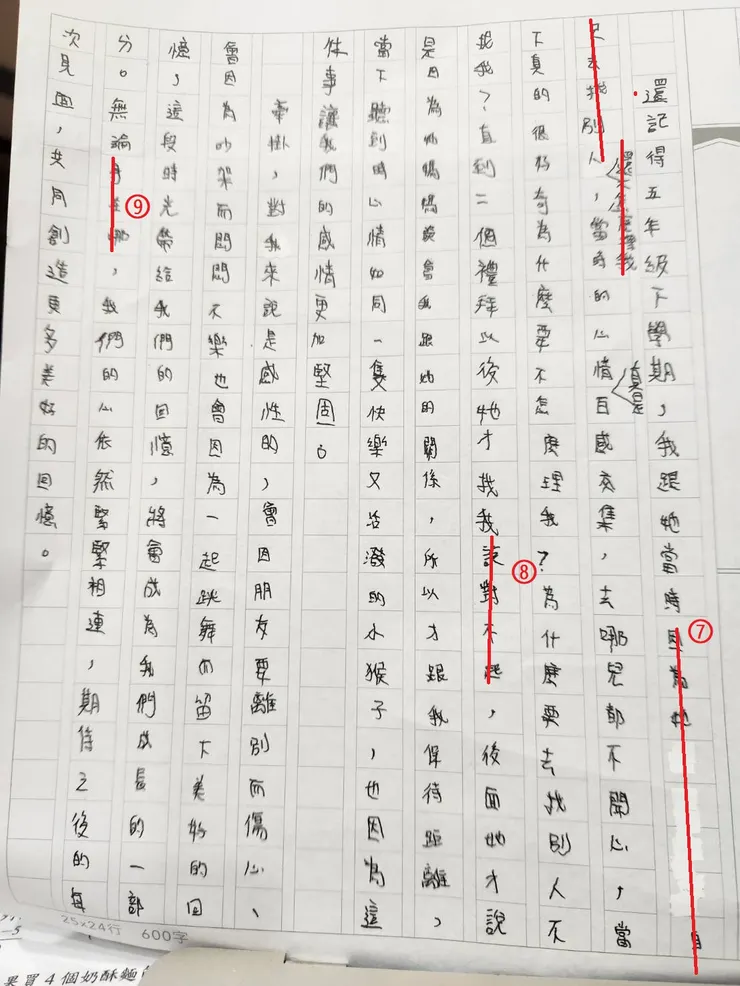 還記得五年級下學期，我跟她當時因為她自
⑦
己去找別人，當時的心情百感交集，去哪兒都不開心，當
還不怎麼理我
真是
下真的很好奇為什麼要不怎麼理我？為什麼要去找別人不
找我？直到二個禮拜以後她才找我說對不起，後面她才說
⑧
是因為她媽媽誤會我跟她的關係，所以才跟我保待距離，
當下聽到時心情如同一隻快樂又活潑的小猴子，也因為這
件事讓我們的感情更加堅固。
牽掛，對我來說是感性的，會因朋友要離別而傷心、
會因為吵架而悶悶不樂也會因為一起跳舞而留下美好的回
憶，這段時光帶給我們的回憶，將會成為我們成長的一部
分。無論身在哪，我們的心依然緊緊相連，期待之後的每
⑨
次見面，共同創造更多美好的回憶。
25x24行 600字
果買4個奶酥麵